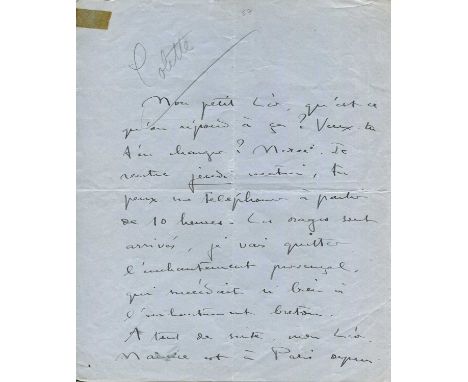 Colette
Mon petit Léo, qu'est-ce
qu'on répond à ça ? Veux-tu
t'en charger ? Merci. Je
rentre jeudi matin, tu
peux me téléphoner à partir
de 10 heures. Les orages sont
arrivés, je vais quitter
l'enchantement provençal,
qui succédait si bien à
l'enchantement breton.
A tout de suite, mon Léo.
Maurice est à Paris depuis